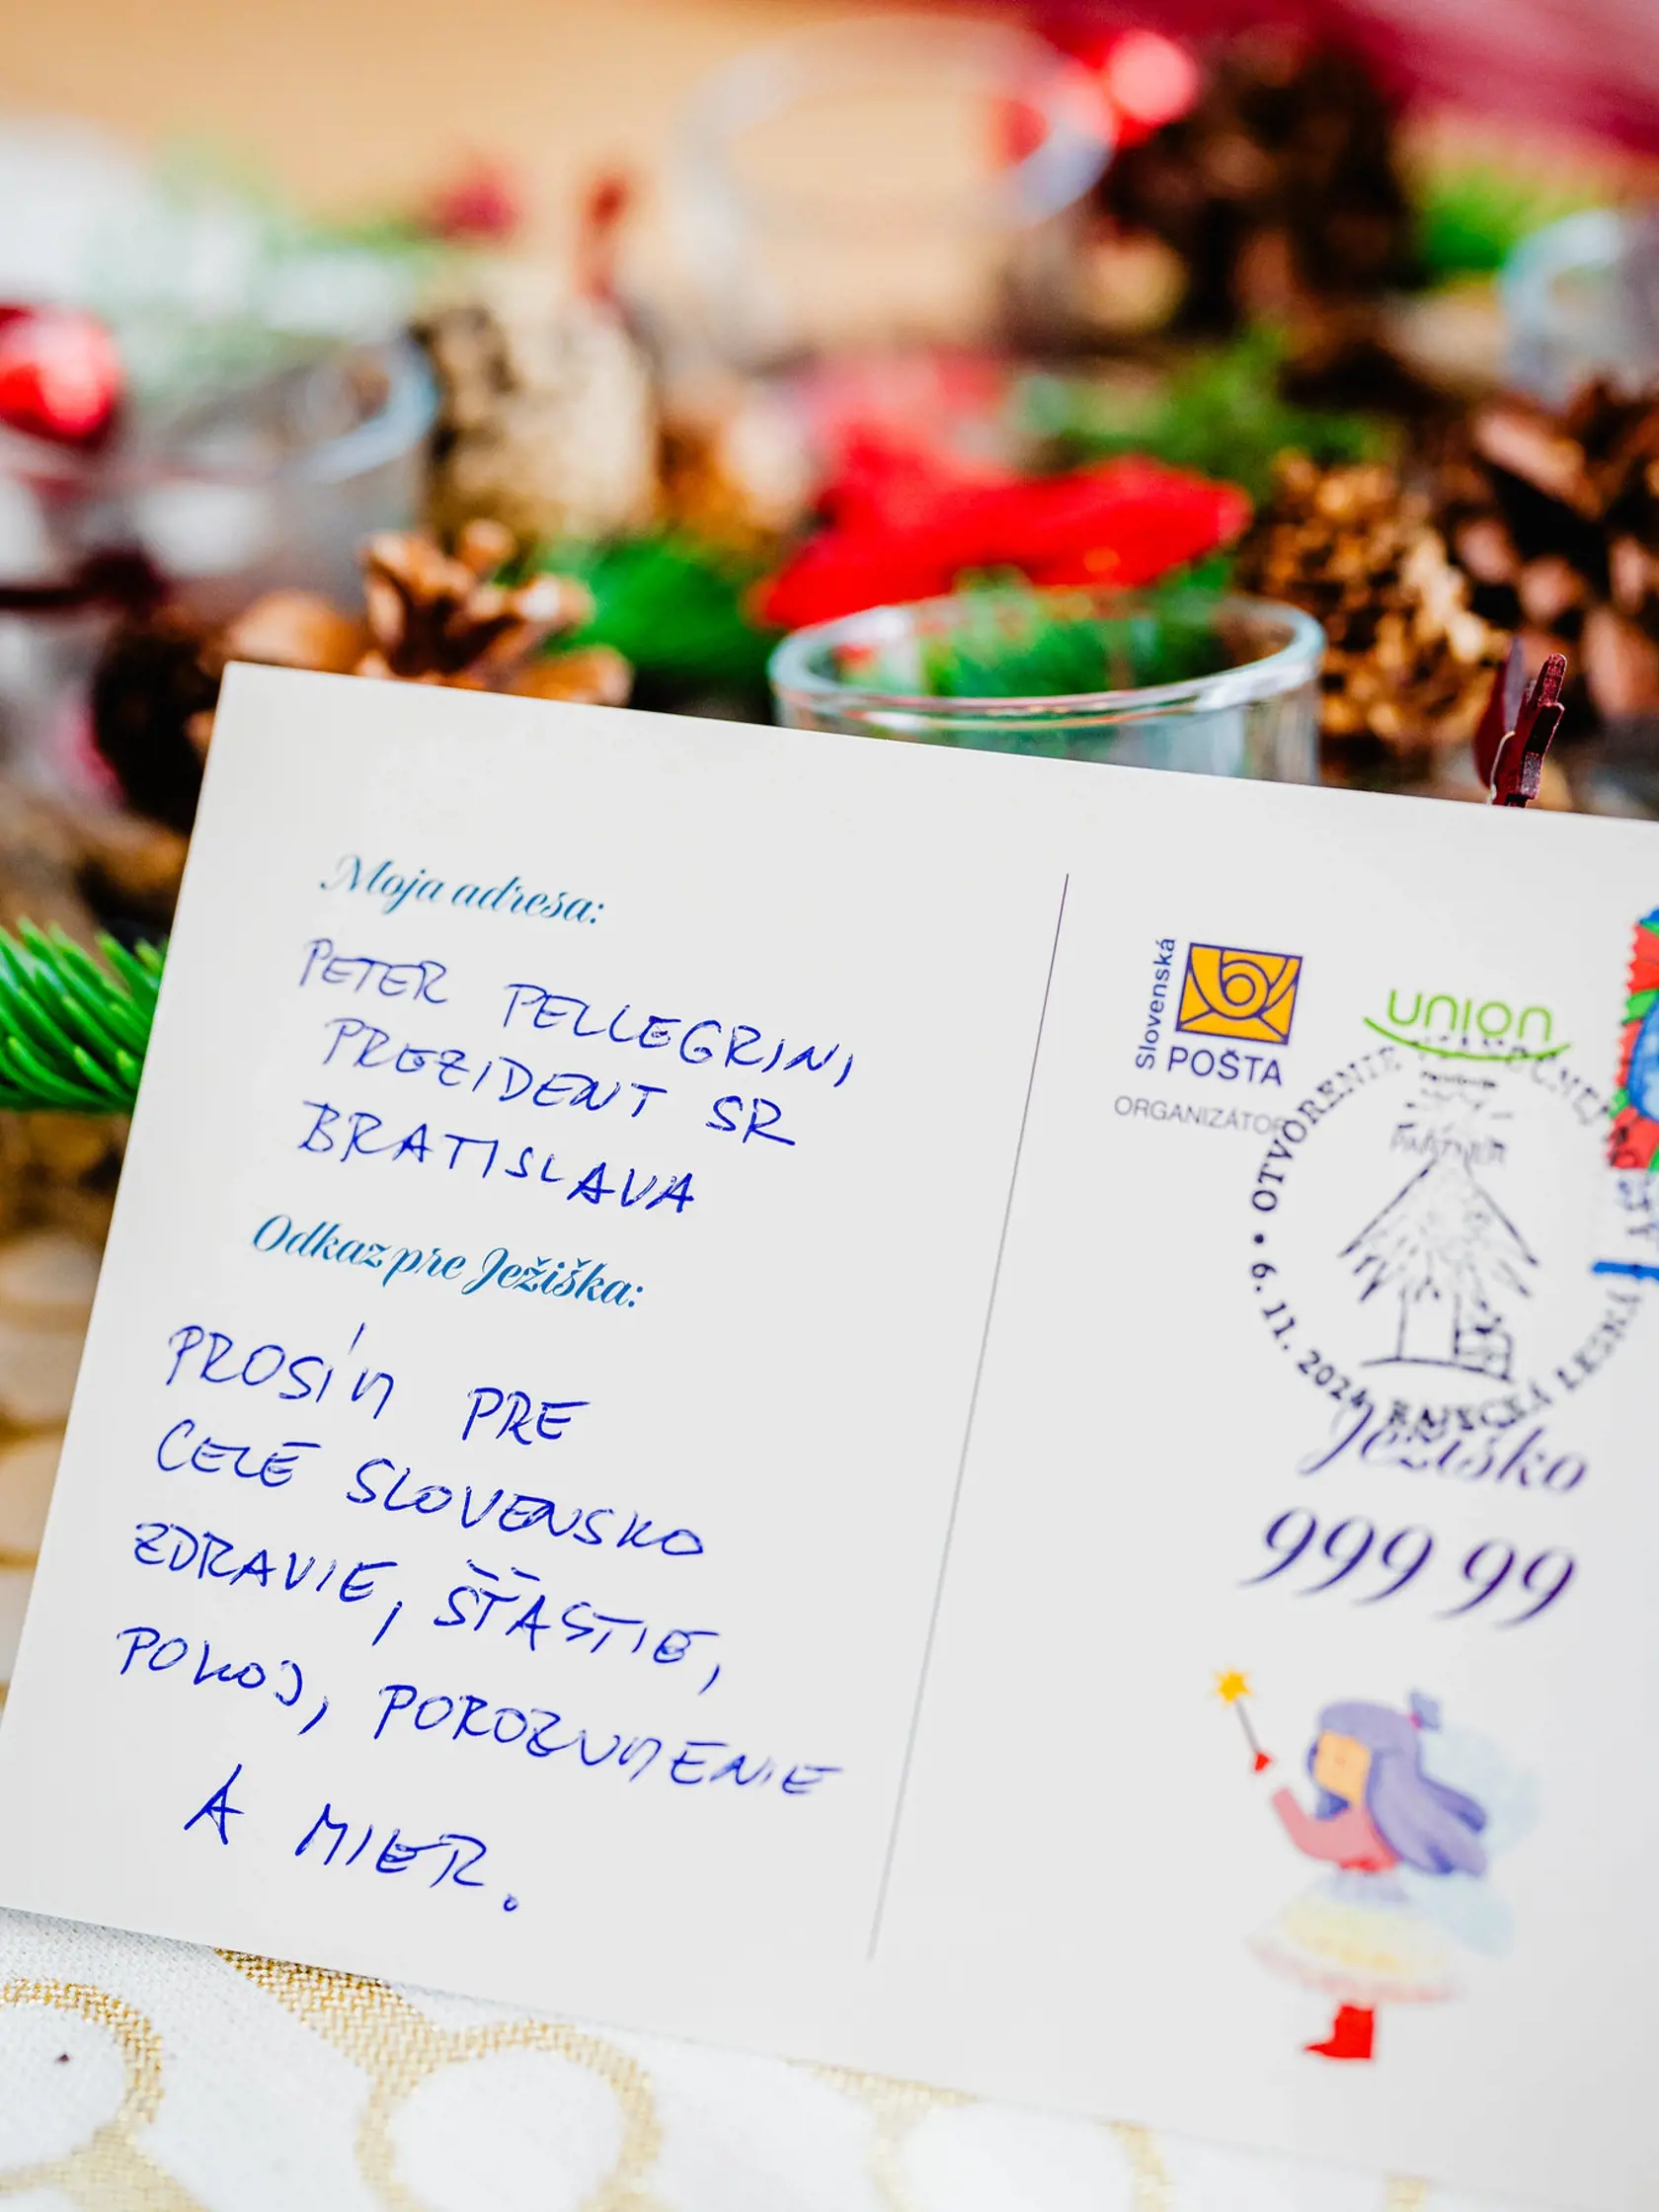 Moja adresa:
PETER PELLEGRINI,
PREZIDENT SR
BRATISLAVA
Odkaz pre Ježiška:
PROSÍM PRE
CELÉ SLOVENSKO
ZDRAVIE, ŠŤASTIE,
POKOJ, POROZUMENIE
A MIER.
Slovenská
POŠTA
ORGANIZÁTOR
union
PARTNER
• OTVORENIE
6. 11. 2024
RAJECKÁ LESNÁ
Ježiško
999 99